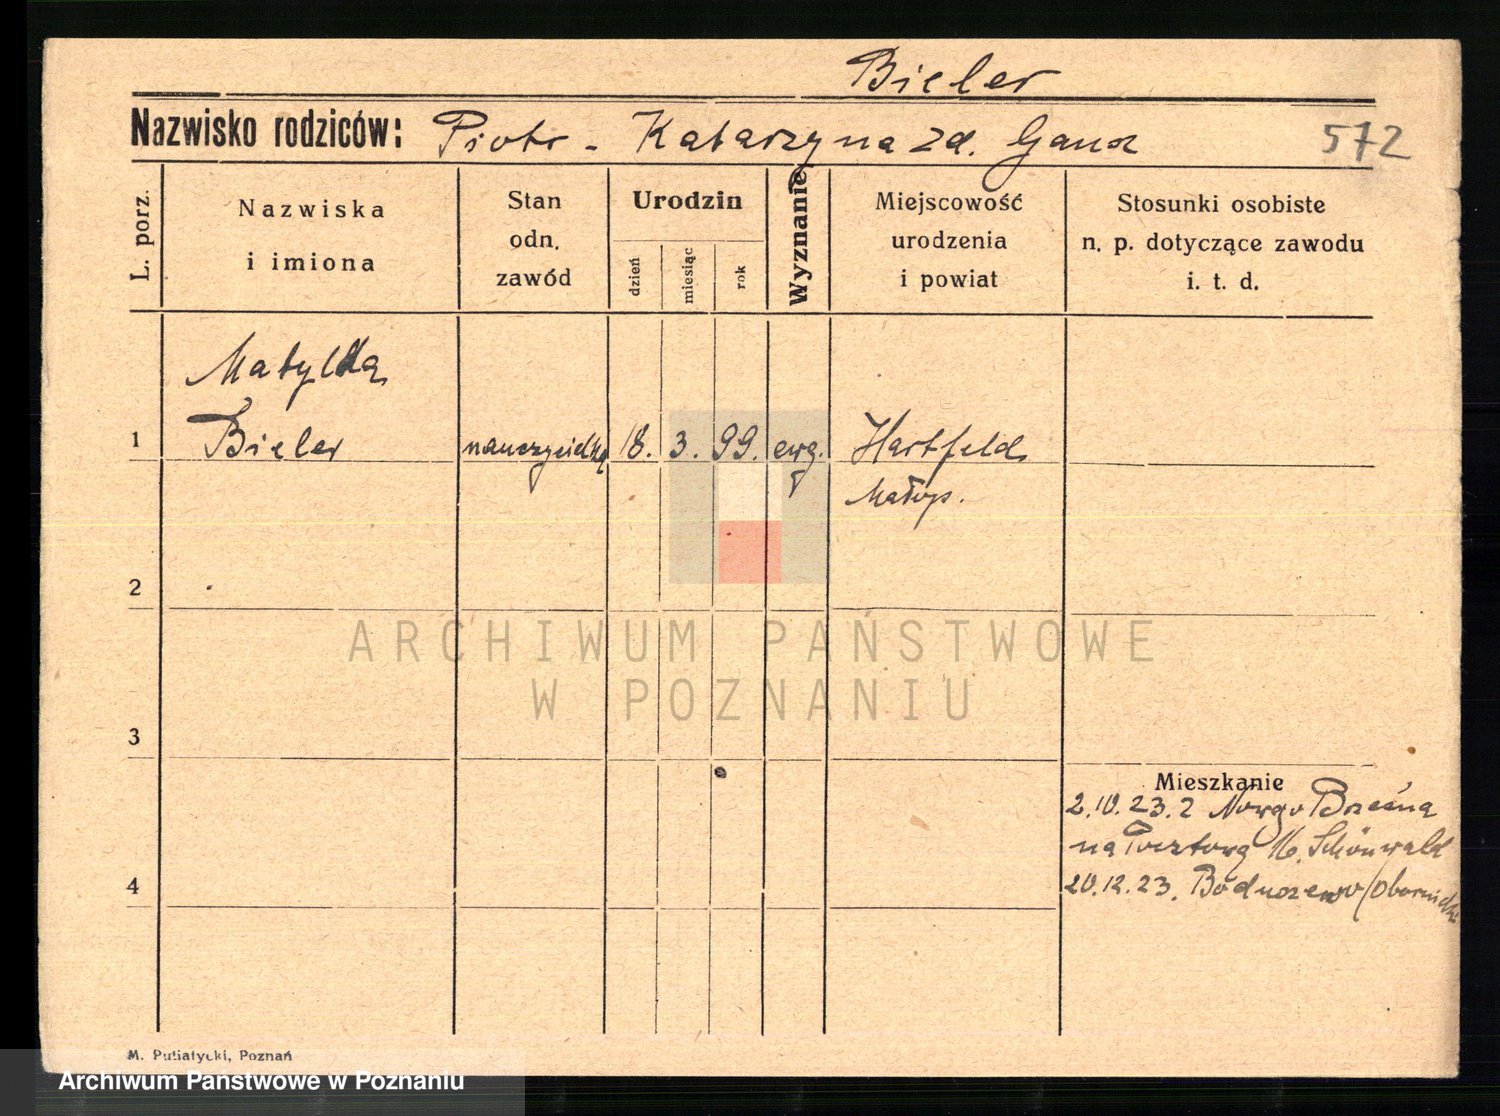 Bieler
Nazwisko rodziców: Piotr - Katarzyna zd. Gaus
572
L. porz.
Nazwiska
i imiona
Stan
odn.
zawód
Urodzin
dzień
miesiąc
rok
Wyznanie
Miejscowość
urodzenia
i powiat
Stosunki osobiste
n. p. dotyczące zawodu
i. t. d.
Matylda
1 Bieler nauczycielka 18. 3. 99. ewg. Hartfeld
Małop.
2
ARCHIWUM PAŃSTWOWE
W POZNANIU
3
Mieszkanie
2.10.23. z Nowego
na Pocztową 16. Schönwald
4
20.12.23.
M. Putiatycki, Poznań
Archiwum Państwowe w Poznaniu